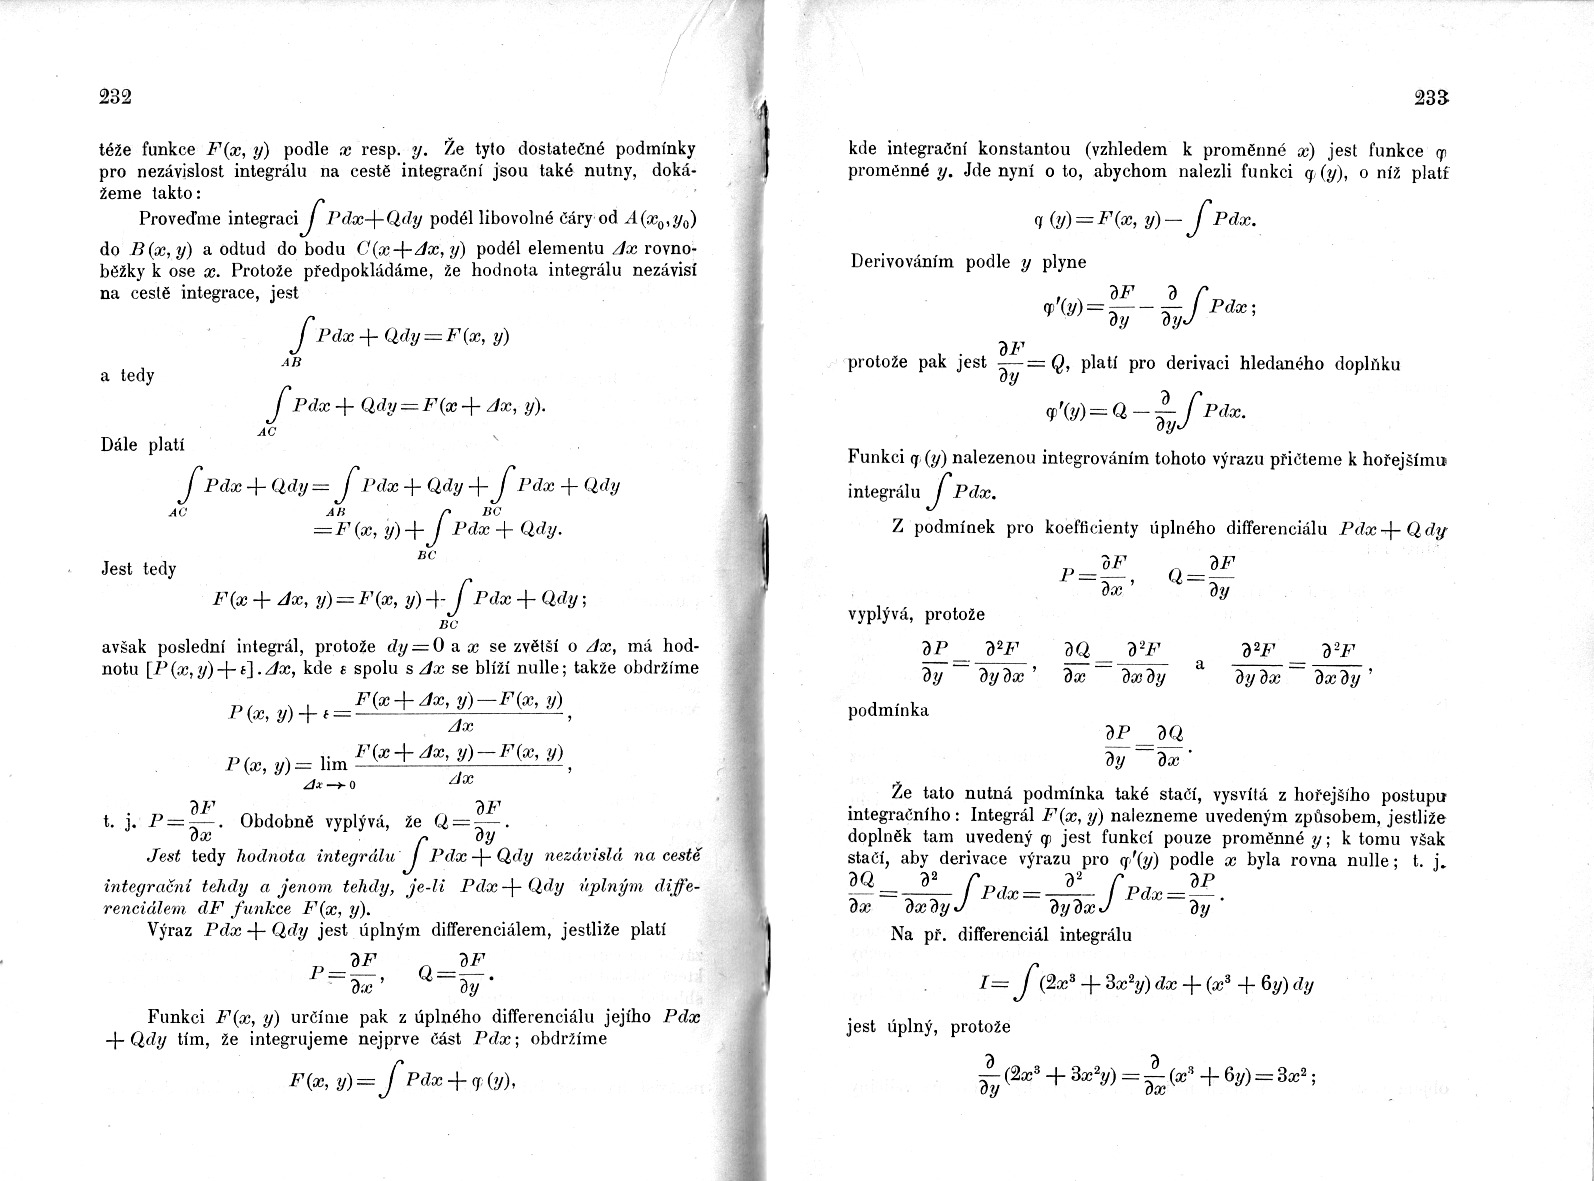 232
téže funkce F(x, y) podle x resp. y. Že tyto dostatečné podmínky
pro nezávislost integrálu na cestě integrační jsou také nutny, doká-
žeme takto:
Proveďme integraci ∫ Pdx+Qdy podél libovolné čáry od A(x₀, y₀)
do B(x, y) a odtud do bodu C(x+Δx, y) podél elementu Δx rovno-
běžky k ose x. Protože předpokládáme, že hodnota integrálu nezávisí
na cestě integrace, jest
∫ Pdx + Qdy = F(x, y)
AB
a tedy
∫ Pdx + Qdy = F(x + Δx, y).
AC
Dále platí
∫ Pdx + Qdy = ∫ Pdx + Qdy + ∫ Pdx + Qdy
AC AB BC
= F(x, y) + ∫ Pdx + Qdy.
BC
Jest tedy
F(x + Δx, y) = F(x, y) + ∫ Pdx + Qdy;
BC
avšak poslední integrál, protože dy = 0 a x se zvětší o Δx, má hod-
notu [P(x, y) + ε] . Δx, kde ε spolu s Δx se blíží nulle; takže obdržíme
P(x, y) + ε = \frac{F(x + Δx, y) — F(x, y)}{Δx},
P(x, y) = lim_{Δx → 0} \frac{F(x + Δx, y) — F(x, y)}{Δx},
t. j. P = \frac{∂F}{∂x}. Obdobně vyplývá, že Q = \frac{∂F}{∂y}.
Jest tedy hodnota integrálu ∫ Pdx + Qdy nezávislá na cestě
integrační tehdy a jenom tehdy, je-li Pdx + Qdy úplným diffe-
renciálem dF funkce F(x, y).
Výraz Pdx + Qdy jest úplným differenciálem, jestliže platí
P = \frac{∂F}{∂x}, Q = \frac{∂F}{∂y}.
Funkci F(x, y) určíme pak z úplného differenciálu jejího Pdx
+ Qdy tím, že integrujeme nejprve část Pdx; obdržíme
F(x, y) = ∫ Pdx + φ(y),
233
kde integrační konstantou (vzhledem k proměnné x) jest funkce φ
proměnné y. Jde nyní o to, abychom nalezli funkci φ(y), o níž platí
φ(y) = F(x, y) — ∫ Pdx.
Derivováním podle y plyne
φ'(y) = \frac{∂F}{∂y} — \frac{∂}{∂y} ∫ Pdx;
protože pak jest \frac{∂F}{∂y} = Q, platí pro derivaci hledaného doplňku
φ'(y) = Q — \frac{∂}{∂y} ∫ Pdx.
Funkci φ(y) nalezenou integrováním tohoto výrazu přičteme k hořejšímu
integrálu ∫ Pdx.
Z podmínek pro koefficienty úplného differenciálu Pdx + Qdy
P = \frac{∂F}{∂x}, Q = \frac{∂F}{∂y}
vyplývá, protože
\frac{∂P}{∂y} = \frac{∂²F}{∂y∂x}, \frac{∂Q}{∂x} = \frac{∂²F}{∂x∂y} a \frac{∂²F}{∂y∂x} = \frac{∂²F}{∂x∂y},
podmínka
\frac{∂P}{∂y} = \frac{∂Q}{∂x}.
Že tato nutná podmínka také stačí, vysvítá z hořejšího postupu
integračního: Integrál F(x, y) nalezneme uvedeným způsobem, jestliže
doplněk tam uvedený φ jest funkcí pouze proměnné y; k tomu však
stačí, aby derivace výrazu pro φ'(y) podle x byla rovna nulle; t. j.
\frac{∂Q}{∂x} = \frac{∂²}{∂x∂y} ∫ Pdx = \frac{∂²}{∂y∂x} ∫ Pdx = \frac{∂P}{∂y}.
Na př. differenciál integrálu
I = ∫ (2x³ + 3x²y) dx + (x³ + 6y) dy
jest úplný, protože
\frac{∂}{∂y}(2x³ + 3x²y) = \frac{∂}{∂x}(x³ + 6y) = 3x²;